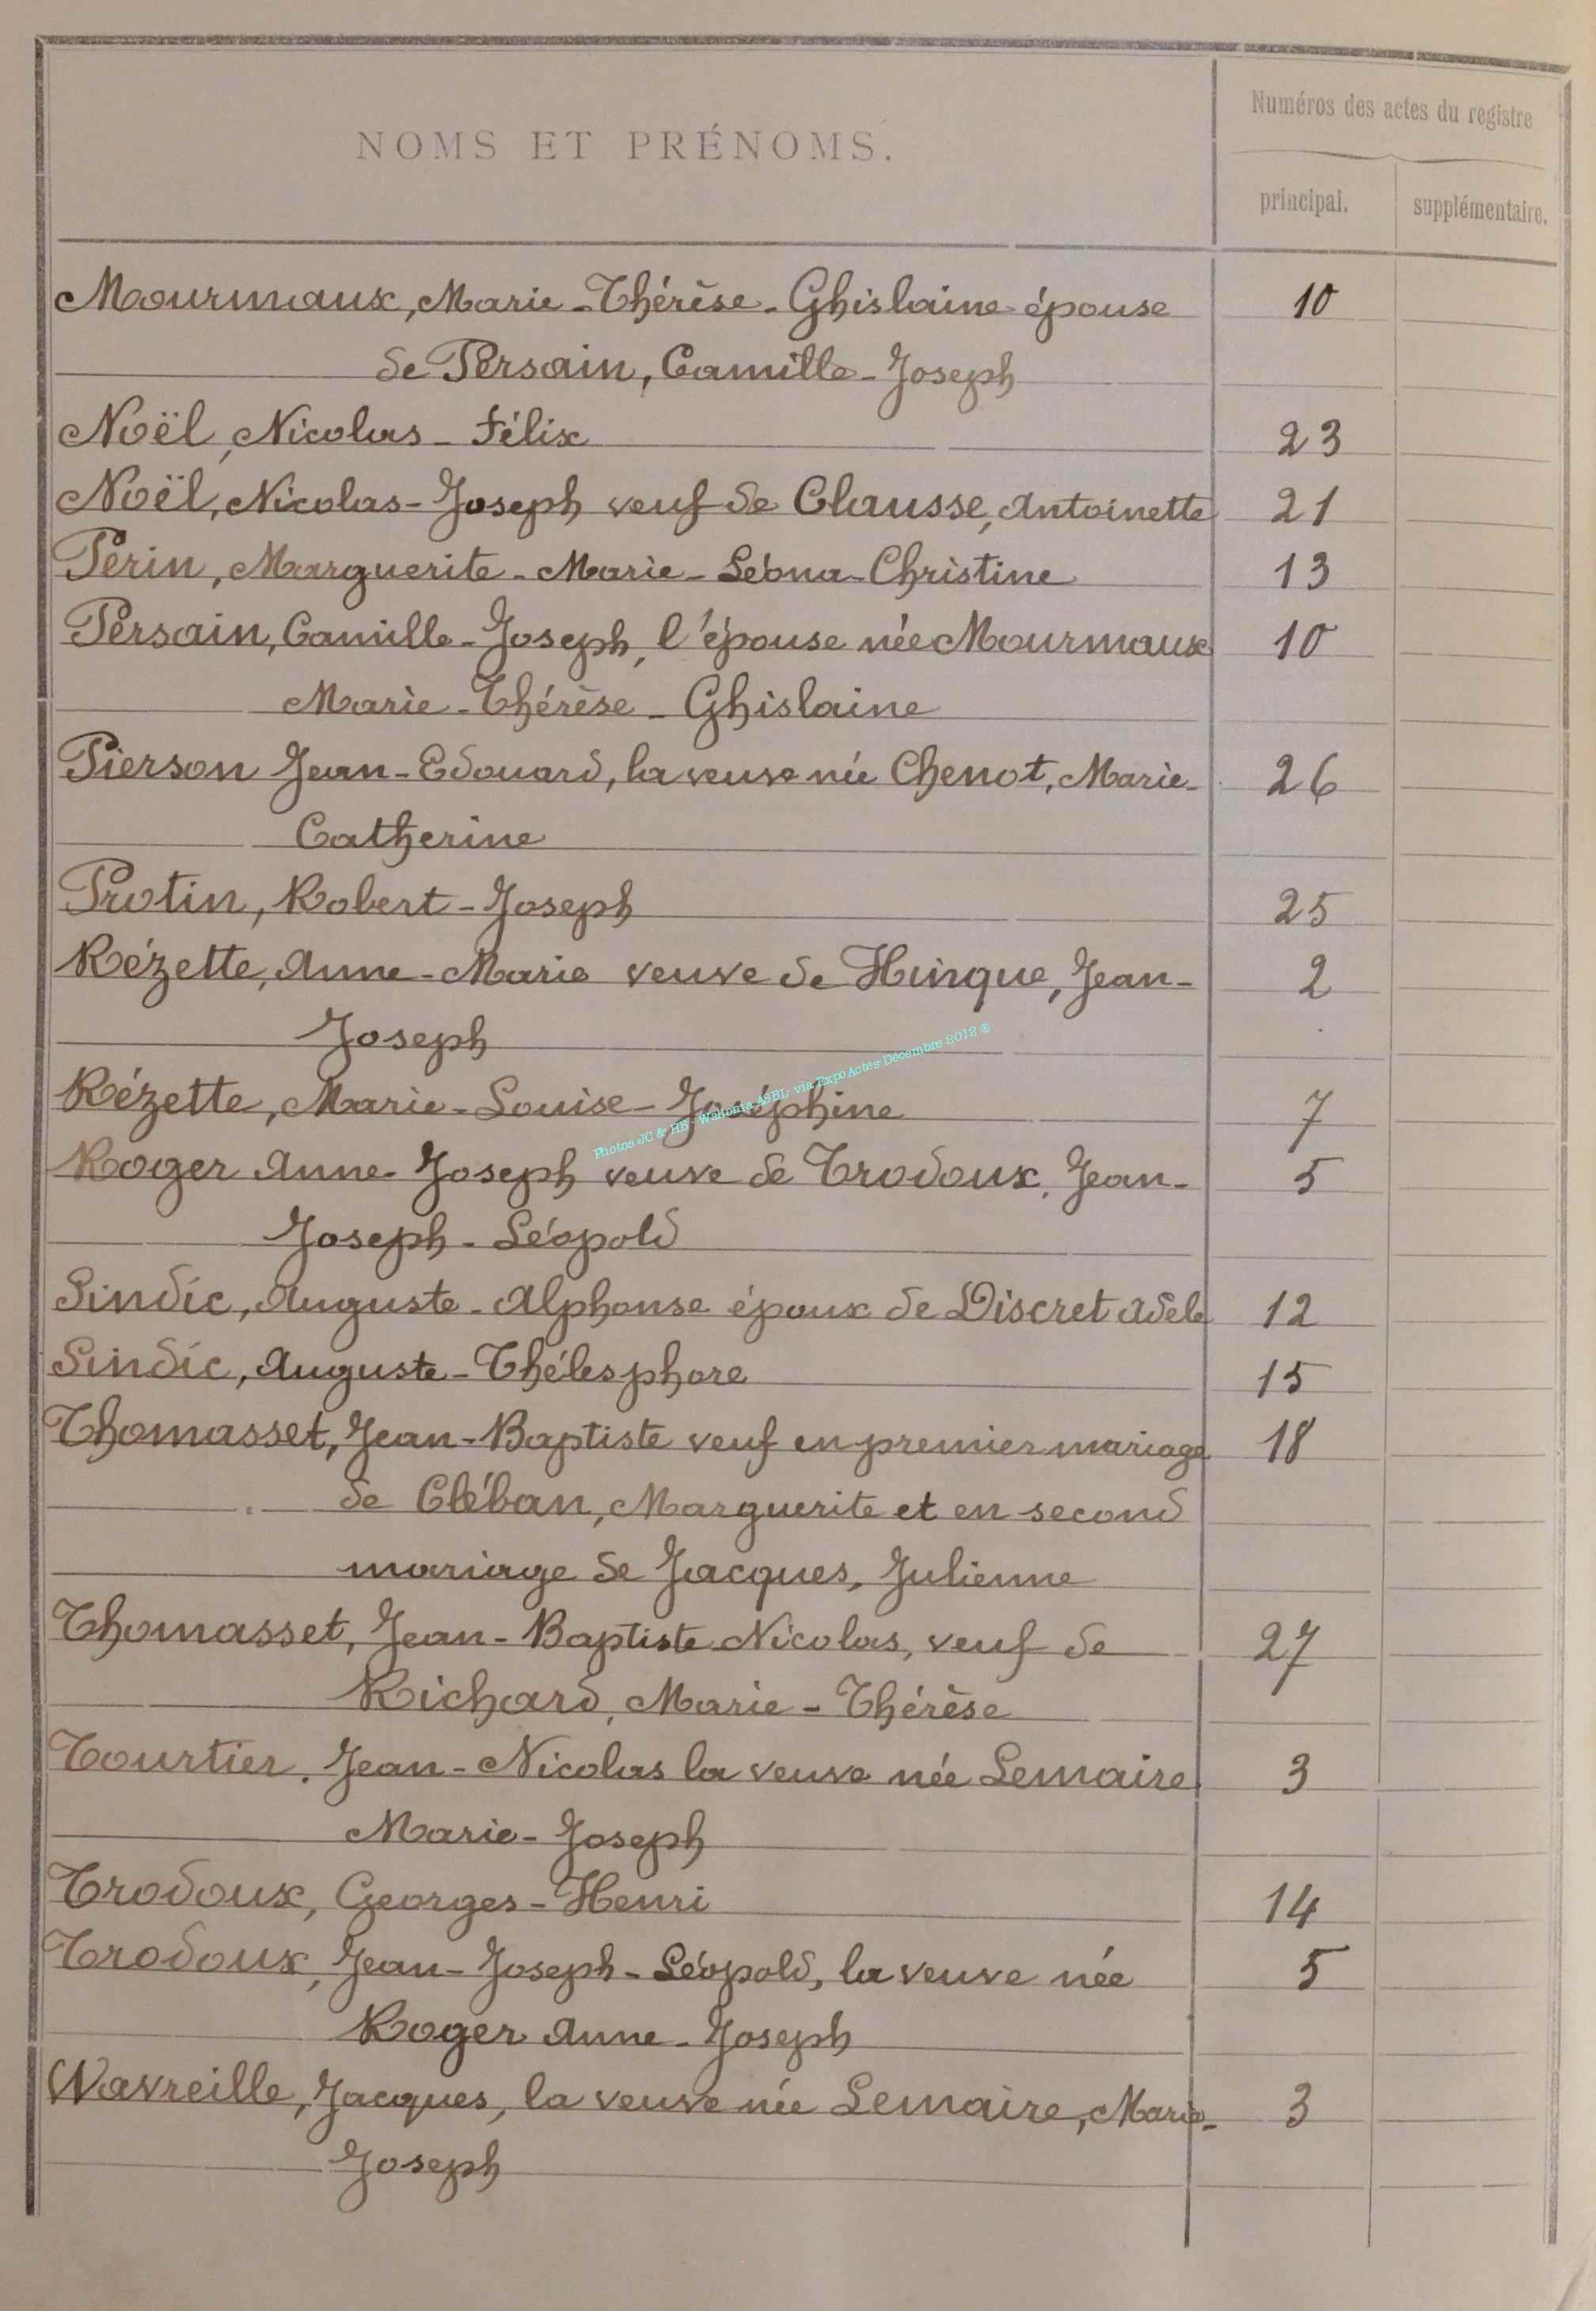 NOMS ET PRÉNOMS.
Numéros des actes du registre
principal.
supplémentaire.
Mourmaux, Marie-Thérèse-Ghislaine épouse 10
de Persain, Camille-Joseph
Noël, Nicolas-Félix 23
Noël, Nicolas-Joseph veuf de Clausse, Antoinette 21
Perin, Marguerite-Marie-Léona-Christine 13
Persain, Camille-Joseph, l'épouse née Mourmaux 10
Marie-Thérèse-Ghislaine
Pierson Jean-Edouard, la veuve née Chenot, Marie- 26
Catherine
Protin, Robert-Joseph 25
Rézette, Anne-Marie veuve de Hinque, Jean- 2
Joseph
Photos JC & HB - Wallonia ASBL via ExpoActes Décembre 2012 ®
Rézette, Marie-Louise-Joséphine 7
Roger Anne-Joseph veuve de Trodoux, Jean- 5
Joseph-Léopold
Sindic, Auguste-Alphonse époux de Discret Adèle 12
Sindic, Auguste-Thélesphore 15
Thomasset, Jean-Baptiste veuf en premier mariage 18
de Cléban, Marguerite et en second
mariage de Jacques, Julienne
Thomasset, Jean-Baptiste Nicolas, veuf de 27
Richard, Marie-Thérèse
Tourtier, Jean-Nicolas la veuve née Lemaire 3
Marie-Joseph
Trodoux, Georges-Henri 14
Trodoux, Jean-Joseph-Léopold, la veuve née 5
Roger Anne-Joseph
Wavreille, Jacques, la veuve née Lemaire, Marie- 3
Joseph